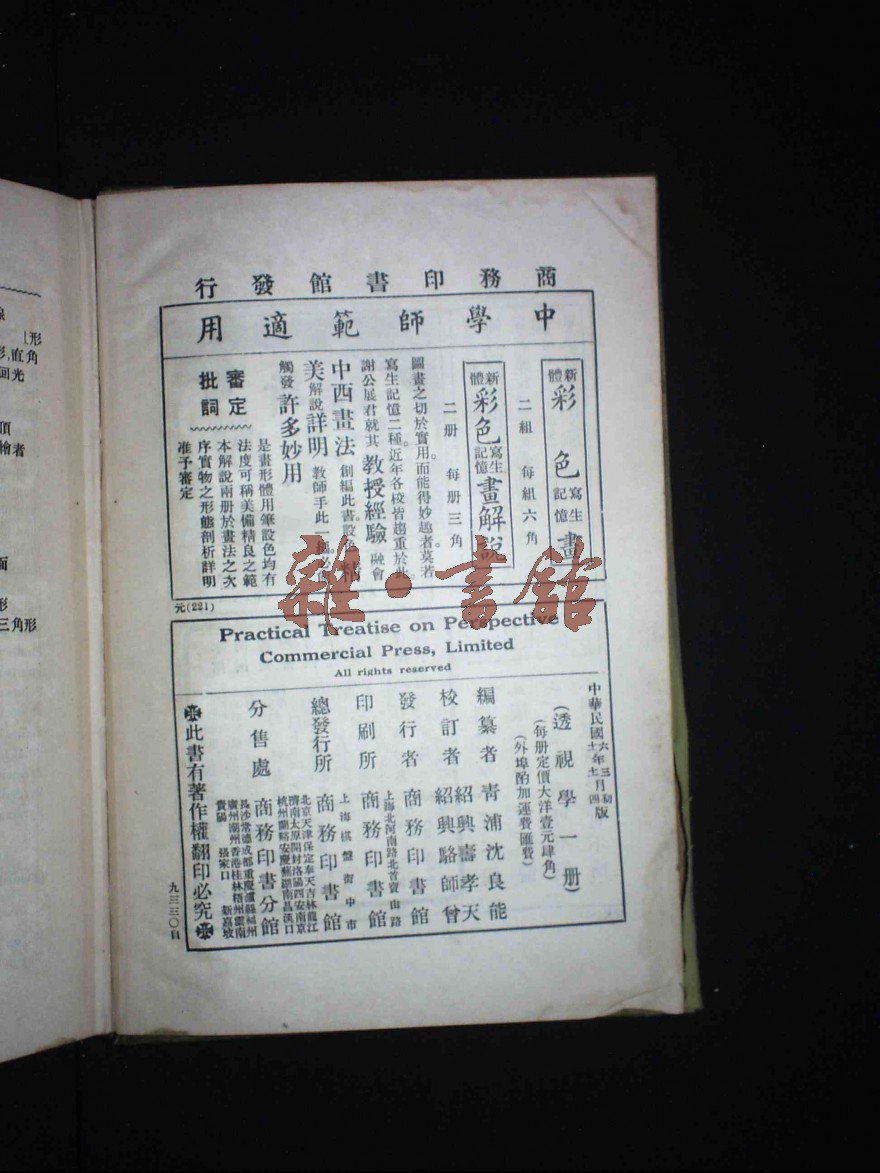 商務印書館發行
中學師範適用
新體彩色寫生記憶畫
二組 每組六角
新體彩色寫生記憶畫解說
二册 每册三角
圖畫之切於實用。而能得妙趣者莫若
寫生記憶二種。近年各校皆趨重於此。
謝公展君就其教授經驗融會
中西畫法創編此書。設色精
美解說詳明教師手此一
觸發許多妙用
審定批詞
是畫形體用筆設色均有
法度可稱美備精良之範
本解說兩册於畫法之次
序實物之形態剖析詳明
准予審定
元(221)
Practical Treatise on Perspective
Commercial Press, Limited
All rights reserved
中華民國六年三月初版
(透視學一册)
(每册定價大洋壹元肆角)
(外埠酌加運費匯費)
編纂者 青浦沈良能
校訂者 紹興壽孝天 紹興駱師曾
發行者 商務印書館
上海北河南路北首寶山路
印刷所 商務印書館
上海棋盤街中市
總發行所 商務印書館
北京天津保定奉天吉林龍江
濟南太原開封洛陽西安南京
杭州蘭谿安慶蕪湖南昌漢口
分售處 商務印書分館
長沙常德成都重慶瀘縣福州
廣州潮州香港桂林梧州雲南
貴陽 張家口 新嘉坡
此書有著作權翻印必究
九三三〇自
形
形,直角
回光
頂
繪者
面
形
三角形
雜·書館